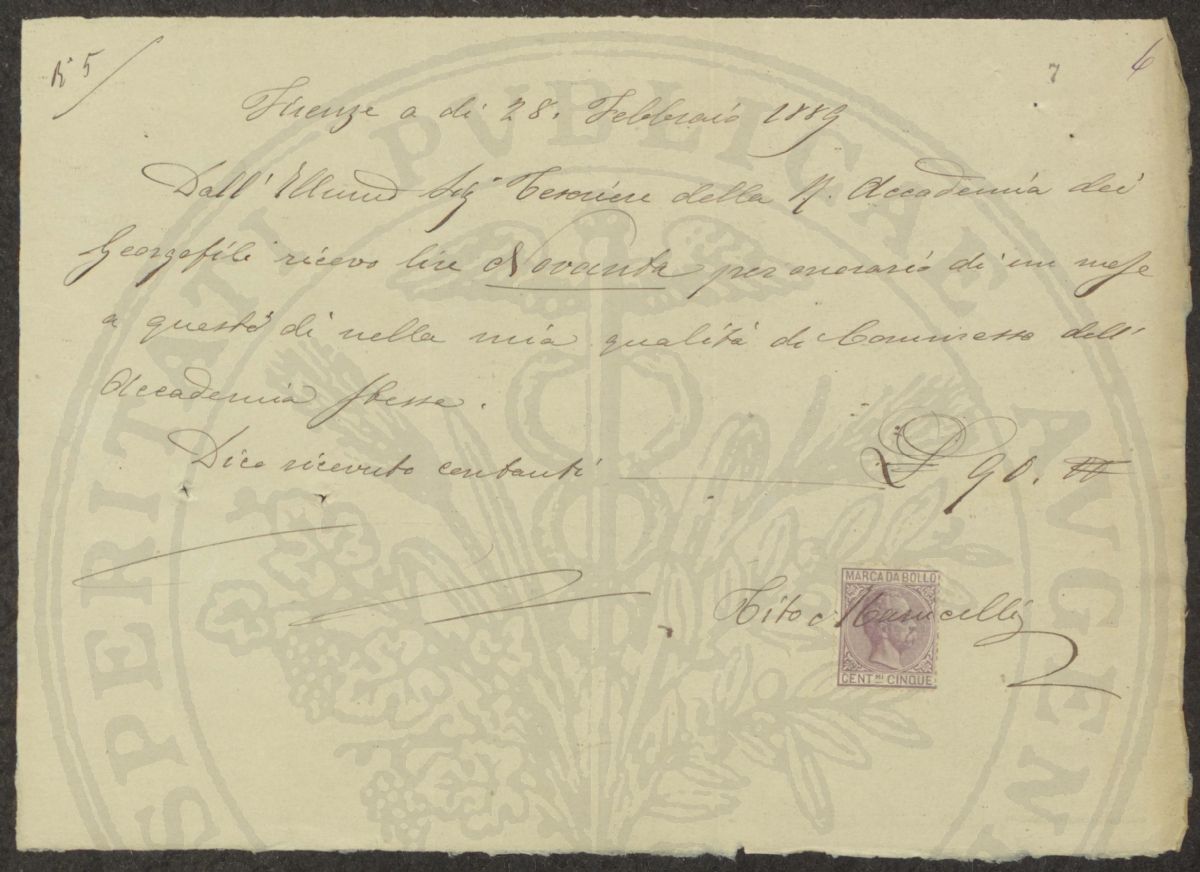 N° 5
7
6
Firenze a di 28. Febbraio 1889
Dall' Illmo Sig Tesoriere della R. Accademia dei
Georgofili ricevo lire Novanta per onorario di un mese
a questo di nella mia qualità di Commesso dell'
Accademia stessa.
Dico ricevuto contanti £ 90.
MARCA DA BOLLO
Tito
CENT.MI CINQUE
PROSPERITATI PVBLICAE AVGEN